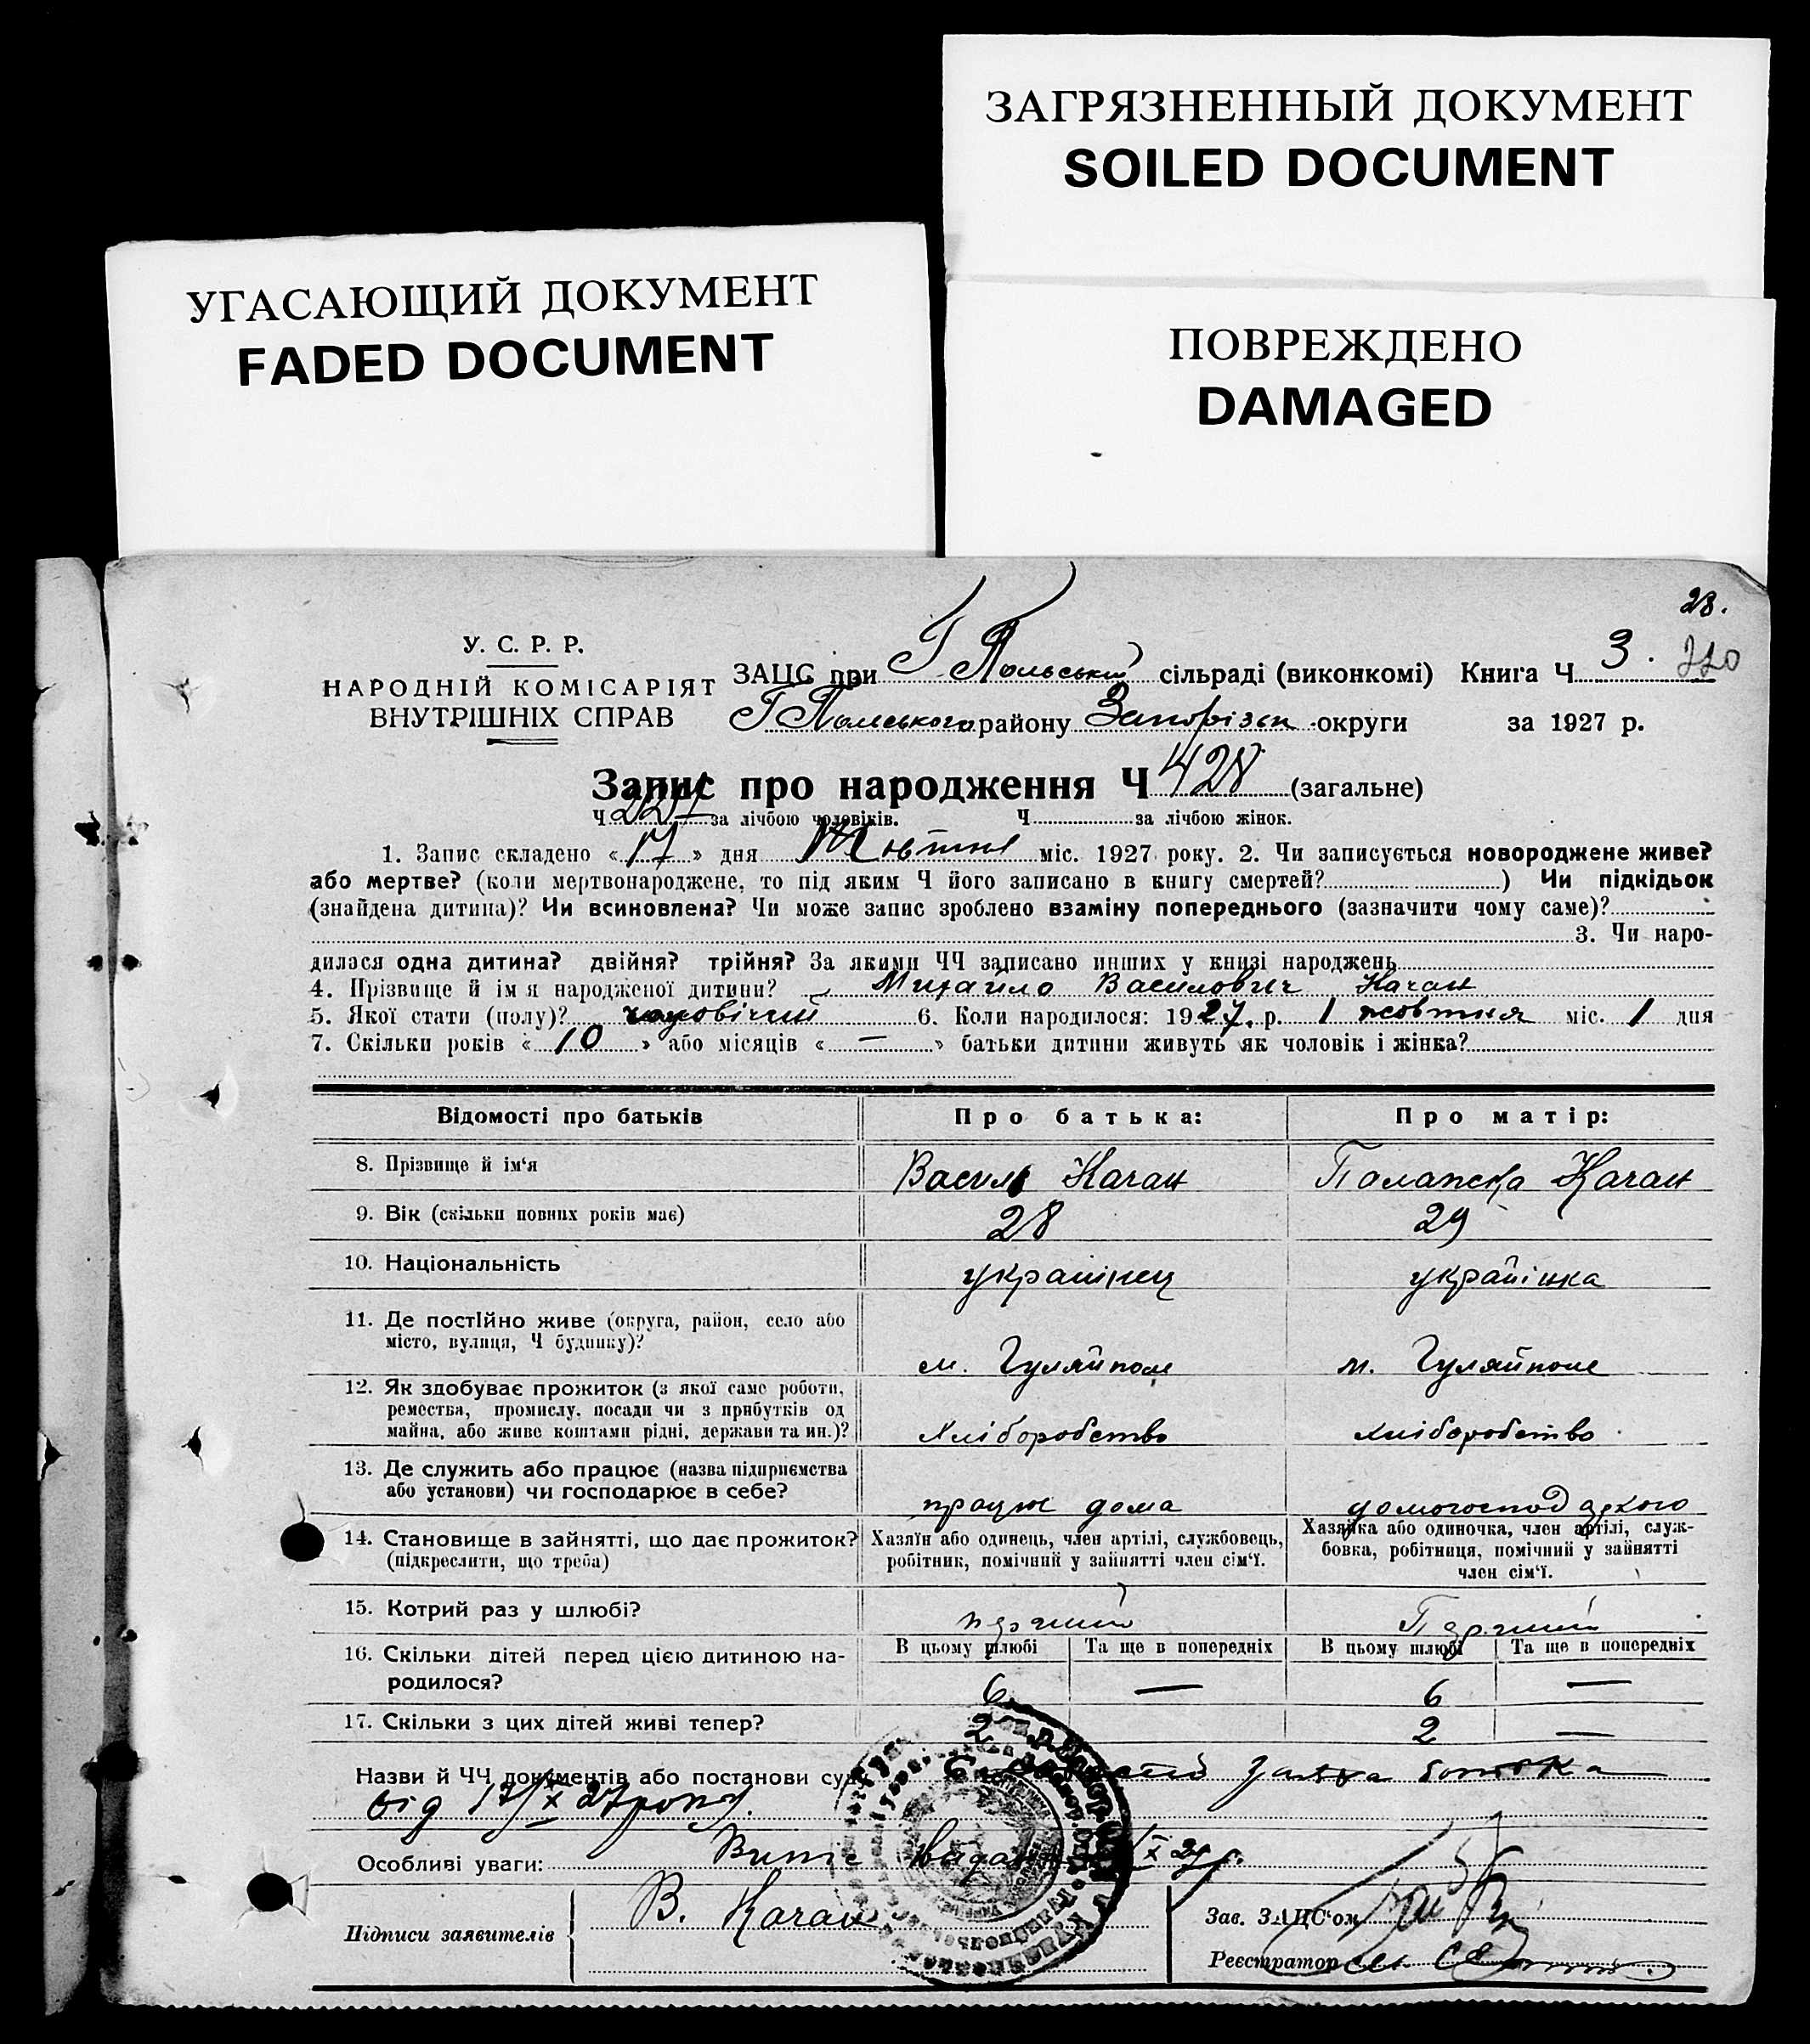 ЗАГРЯЗНЕННЫЙ ДОКУМЕНТ
SOILED DOCUMENT
УГАСАЮЩИЙ ДОКУМЕНТ
FADED DOCUMENT
ПОВРЕЖДЕНО
DAMAGED
28.
У. С. Р. Р.
НАРОДНІЙ КОМІСАРІЯТ
ВНУТРІШНІХ СПРАВ
ЗАЦС при Г Польській сільраді (виконкомі) Книга Ч 3.
Г Польського району Запорізьк. округи за 1927 р.
Запис про народження Ч 428 (загальне)
Ч 221 за лічбою чоловіків. Ч за лічбою жінок.
1. Запис складено « 17 » дня Жовтня міс. 1927 року. 2. Чи записується новороджене живе?
або мертве? (коли мертвонароджене, то під яким Ч його записано в книгу смертей? ) Чи підкідьок
(знайдена дитина)? Чи всиновлена? Чи може запис зроблено взаміну попереднього (зазначити чому саме)?
3. Чи наро-
дилася одна дитина? двійня? трійня? За якими ЧЧ записано инших у книзі народжень
4. Прізвище й ім я народженої дитини? Михайло Василович Качан
5. Якої стати (полу)? чоловічий 6. Коли народилося: 1927 р. 1 жовтня міс. 1 дня
7. Скільки років « 10 » або місяців « — » батьки дитини живуть як чоловік і жінка?
Відомості про батьків Про батька: Про матір:
8. Прізвище й ім‘я Василь Качан Палажка Качан
9. Вік (скільки повних років має) 28 29
10. Національність українец українка
11. Де постійно живе (округа, район, село або
місто, вулиця, Ч будинку)? м. Гуляйполе м. Гуляйполе
12. Як здобуває прожиток (з якої саме роботи,
ремества, промислу, посади чи з прибутків од
майна, або живе коштами рідні, держави та ин.)? Хліборобство хліборобство
13. Де служить або працює (назва підприємства
або установи) чи господарює в себе? працює дома
14. Становище в зайнятті, що дає прожиток? Хазяїн або одинець, член артілі, службовець, Хазяйка або одиночка, член артілі, служ-
(підкреслити, що треба) робітник, помічний у зайнятті член сім‘ї. бовка, робітниця, помічний у зайнятті
член сім‘ї.
15. Котрий раз у шлюбі? перший Перший
16. Скільки дітей перед цією дитиною на- В цьому шлюбі Та ще в попередніх В цьому шлюбі Та ще в попередніх
родилося? 6 — 6 —
17. Скільки з цих дітей живі тепер? 2 2 —
Назви й ЧЧ документів або постанови суду заява батька
від 17/X 27 року.
Особливі уваги: Випис видано X 27 р.
Підписи заявителів В. Качан
Зав. ЗАЦС‘ом
Реєстратор